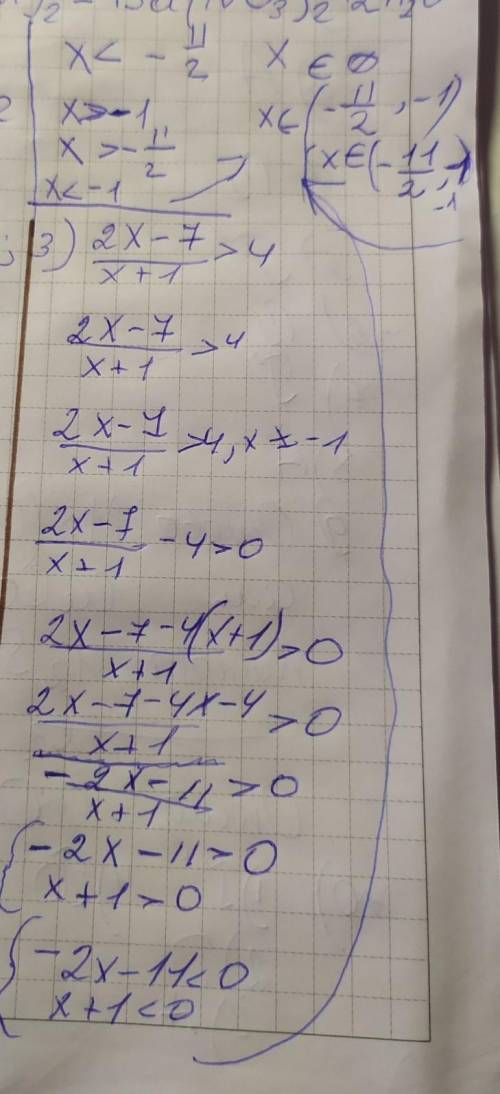 x < - 11/2    x ∈ ∅
x > -1    x ∈ (- 11/2, -1)
x > - 11/2    x ∈ (- 11/2, -1)
x < -1    -1
3) (2x - 7)/(x + 1) > 4
(2x - 7)/(x + 1) > 4
(2x - 7)/(x + 1) > 4, x ≠ -1
(2x - 7)/(x + 1) - 4 > 0
(2x - 7 - 4(x + 1))/(x + 1) > 0
(2x - 7 - 4x - 4)/(x + 1) > 0
(-2x - 11)/(x + 1) > 0
{ -2x - 11 > 0
x + 1 > 0
{ -2x - 11 < 0
x + 1 < 0